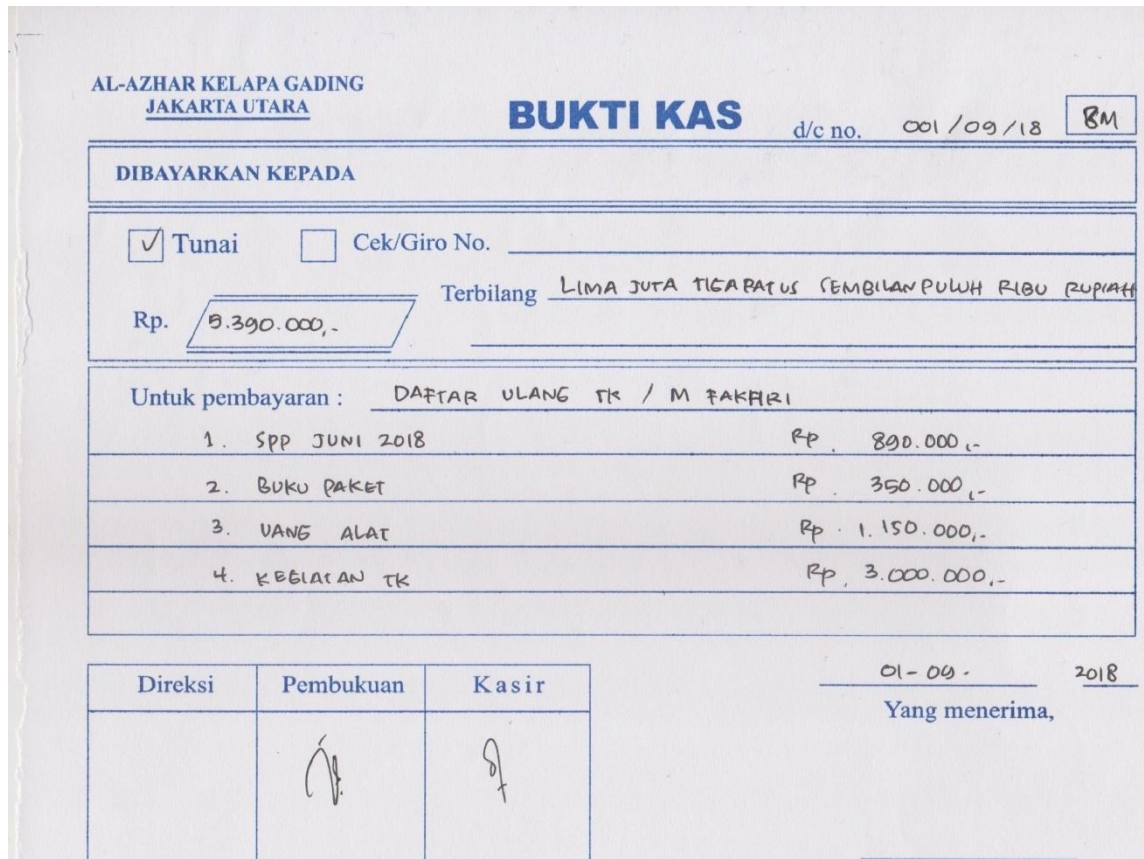 AL-AZHAR KELAPA GADING
JAKARTA UTARA
BUKTI KAS d/c no. 001/09/18 BM
DIBAYARKAN KEPADA
✓ Tunai Cek/Giro No.
Terbilang LIMA JUTA TIGA RATUS SEMBILAN PULUH RIBU RUPIAH
Rp. 5.390.000,-
Untuk pembayaran : DAFTAR ULANG TK / M FAKHRI
1. SPP JUNI 2018 Rp. 890.000,-
2. BUKU PAKET Rp 350.000,-
3. UANG ALAT Rp. 1.150.000,-
4. KEGIATAN TK Rp. 3.000.000,-
Direksi Pembukuan Kasir
01-09- 2018
Yang menerima,